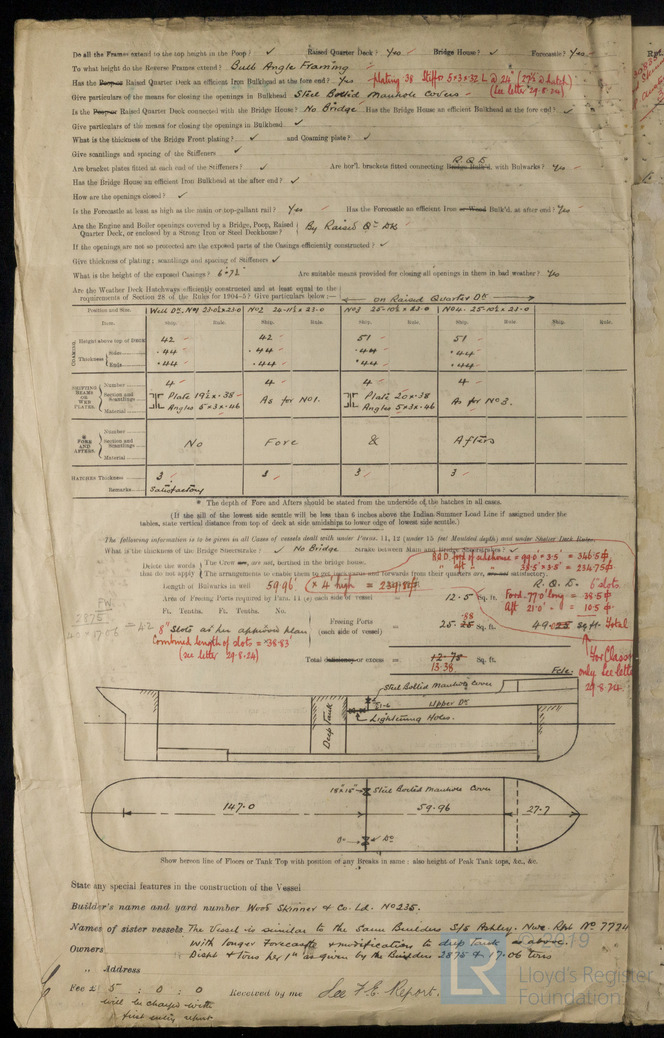 Do all the Frames extend to the top height in the Poop? ✓ Raised Quarter Deck? Yes Bridge House? ✓ Forecastle? Yes
To what height do the Reverse Frames extend? Bulb Angle Framing
Has the Poop or Raised Quarter Deck an efficient Iron Bulkhead at the fore end? Yes plating 38 Stiffrs 5×3×32 L @ 24" (27½ @ hatch)
Give particulars of the means for closing the openings in Bulkhead Steel Bolted Manhole Covers (see letter 29.8.24)
Is the Poop or Raised Quarter Deck connected with the Bridge House? No Bridge Has the Bridge House an efficient Bulkhead at the fore end? ✓
Give particulars of the means for closing the openings in Bulkhead ✓
What is the thickness of the Bridge Front plating? ✓ and Coaming plate? ✓
Give scantlings and spacing of the Stiffeners ✓
Are bracket plates fitted at each end of the Stiffeners? ✓ Are hor'l. brackets fitted connecting R.Q.D. Bridge Bulk'd. with Bulwarks? Yes
Has the Bridge House an efficient Iron Bulkhead at the after end? ✓
How are the openings closed? ✓
Is the Forecastle at least as high as the main or top-gallant rail? Yes Has the Forecastle an efficient Iron or Wood Bulk'd. at after end? Yes
Are the Engine and Boiler openings covered by a Bridge, Poop, Raised Quarter Deck, or enclosed by a Strong Iron or Steel Deckhouse? By Raised Qr Dk
If the openings are not so protected are the exposed parts of the Casings efficiently constructed? ✓
Give thickness of plating; scantlings and spacing of Stiffeners ✓
What is the height of the exposed Casings? 6'-7½" Are suitable means provided for closing all openings in them in bad weather? Yes
Are the Weather Deck Hatchways efficiently constructed and at least equal to the
requirements of Section 28 of the Rules for 1904-5? Give particulars below:— on Raised Quarter Dk
Position and Size. Well Dk. No1 23-0½×23-0 No2 24-11½ × 23-0 No3 25-10½ × 23-0 No4. 25-10½ × 23-0
Item. Ship. Rule. Ship. Rule. Ship. Rule. Ship. Rule. Ship. Rule.
COAMING. Height above top of DECK 42 42 51 51
Thickness Sides .44 .44 .44 .44
Ends .44 .44 .44 .44
SHIFTING BEAMS OR WEB PLATES. Number 4 4 4 4
Section and Scantlings Plate 19½ × .38 As for No1. Plate 20 × .38 As for No3.
Material Angles 5×3×.46 Angles 5×3×.46
* FORE AND AFTERS. Number
Section and Scantlings No Fore & Afters
Material
HATCHES Thickness 3 3 3 3
Remarks Satisfactory
* The depth of Fore and Afters should be stated from the underside of the hatches in all cases.
(If the sill of the lowest side scuttle will be less than 6 inches above the Indian Summer Load Line if assigned under the
tables, state vertical distance from top of deck at side amidships to lower edge of lowest side scuttle.)
The following information is to be given in all Cases of vessels dealt with under Paras. 11, 12 (under 15 feet Moulded depth) and under Shelter Deck Rule.
What is the thickness of the Bridge Sheerstrake? ✓ No Bridge Strake between Main and Bridge Sheerstrakes? ✓
Delete the words that do not apply The Crew are, are not, berthed in the bridge house.
The arrangements to enable them to get backwards and forwards from their quarters are, are not satisfactory.
R.Q.D. ford of deckhouse = 99.0' × 3.5' = 346.5
R.Q. aft = 38.5' × 3.5' = 234.75
Length of Bulwarks in well 59.96' × 4 high = 239.84
R.Q.D. 6" slots.
Area of Freeing Ports required by Para. 11 (e) each side of vessel = 12.5 Sq. ft.
Ford. 77.0' long = 38.5
Aft 21.0' = 10.5
Ft. Tenths. Ft. Tenths. No.
Freeing Ports (each side of vessel) = 25.88 Sq. ft. 49.0 Sq. ft. Total
8" Slots as per approved plan
Combined length of slots = 38.83'
(see letter 29.8.24)
Total deficiency or excess = 13.38 Sq. ft.
for Class only see letter 29.8.24.
FW.
2875
40 × 17.06 = 4.2
Fcle.
Steel Bolted Manhole Cover
Upper Dk
Deep Tank
Lightening Holes.
18"×15" Steel Bolted Manhole Cover
147.0 59.96 27.7
Do
Show hereon line of Floors or Tank Top with position of any Breaks in same; also height of Peak Tank tops, &c., &c.
State any special features in the construction of the Vessel
Builder's name and yard number Wood Skinner & Co. Ld. No 235.
Names of sister vessels The Vessel is similar to the Same Builders S/S Ashley. Nwc. Rpt No 7774
with longer Forecastle & modifications to deep tank as above.
Owners Displt & tons per 1" as given by the Builders 2875 & 17.06 tons
„ Address
Fee £ 5 : 0 : 0 Received by me See F.E. Report.
will be charged with
first entry report
© 2019
LR
Lloyd's Register
Foundation